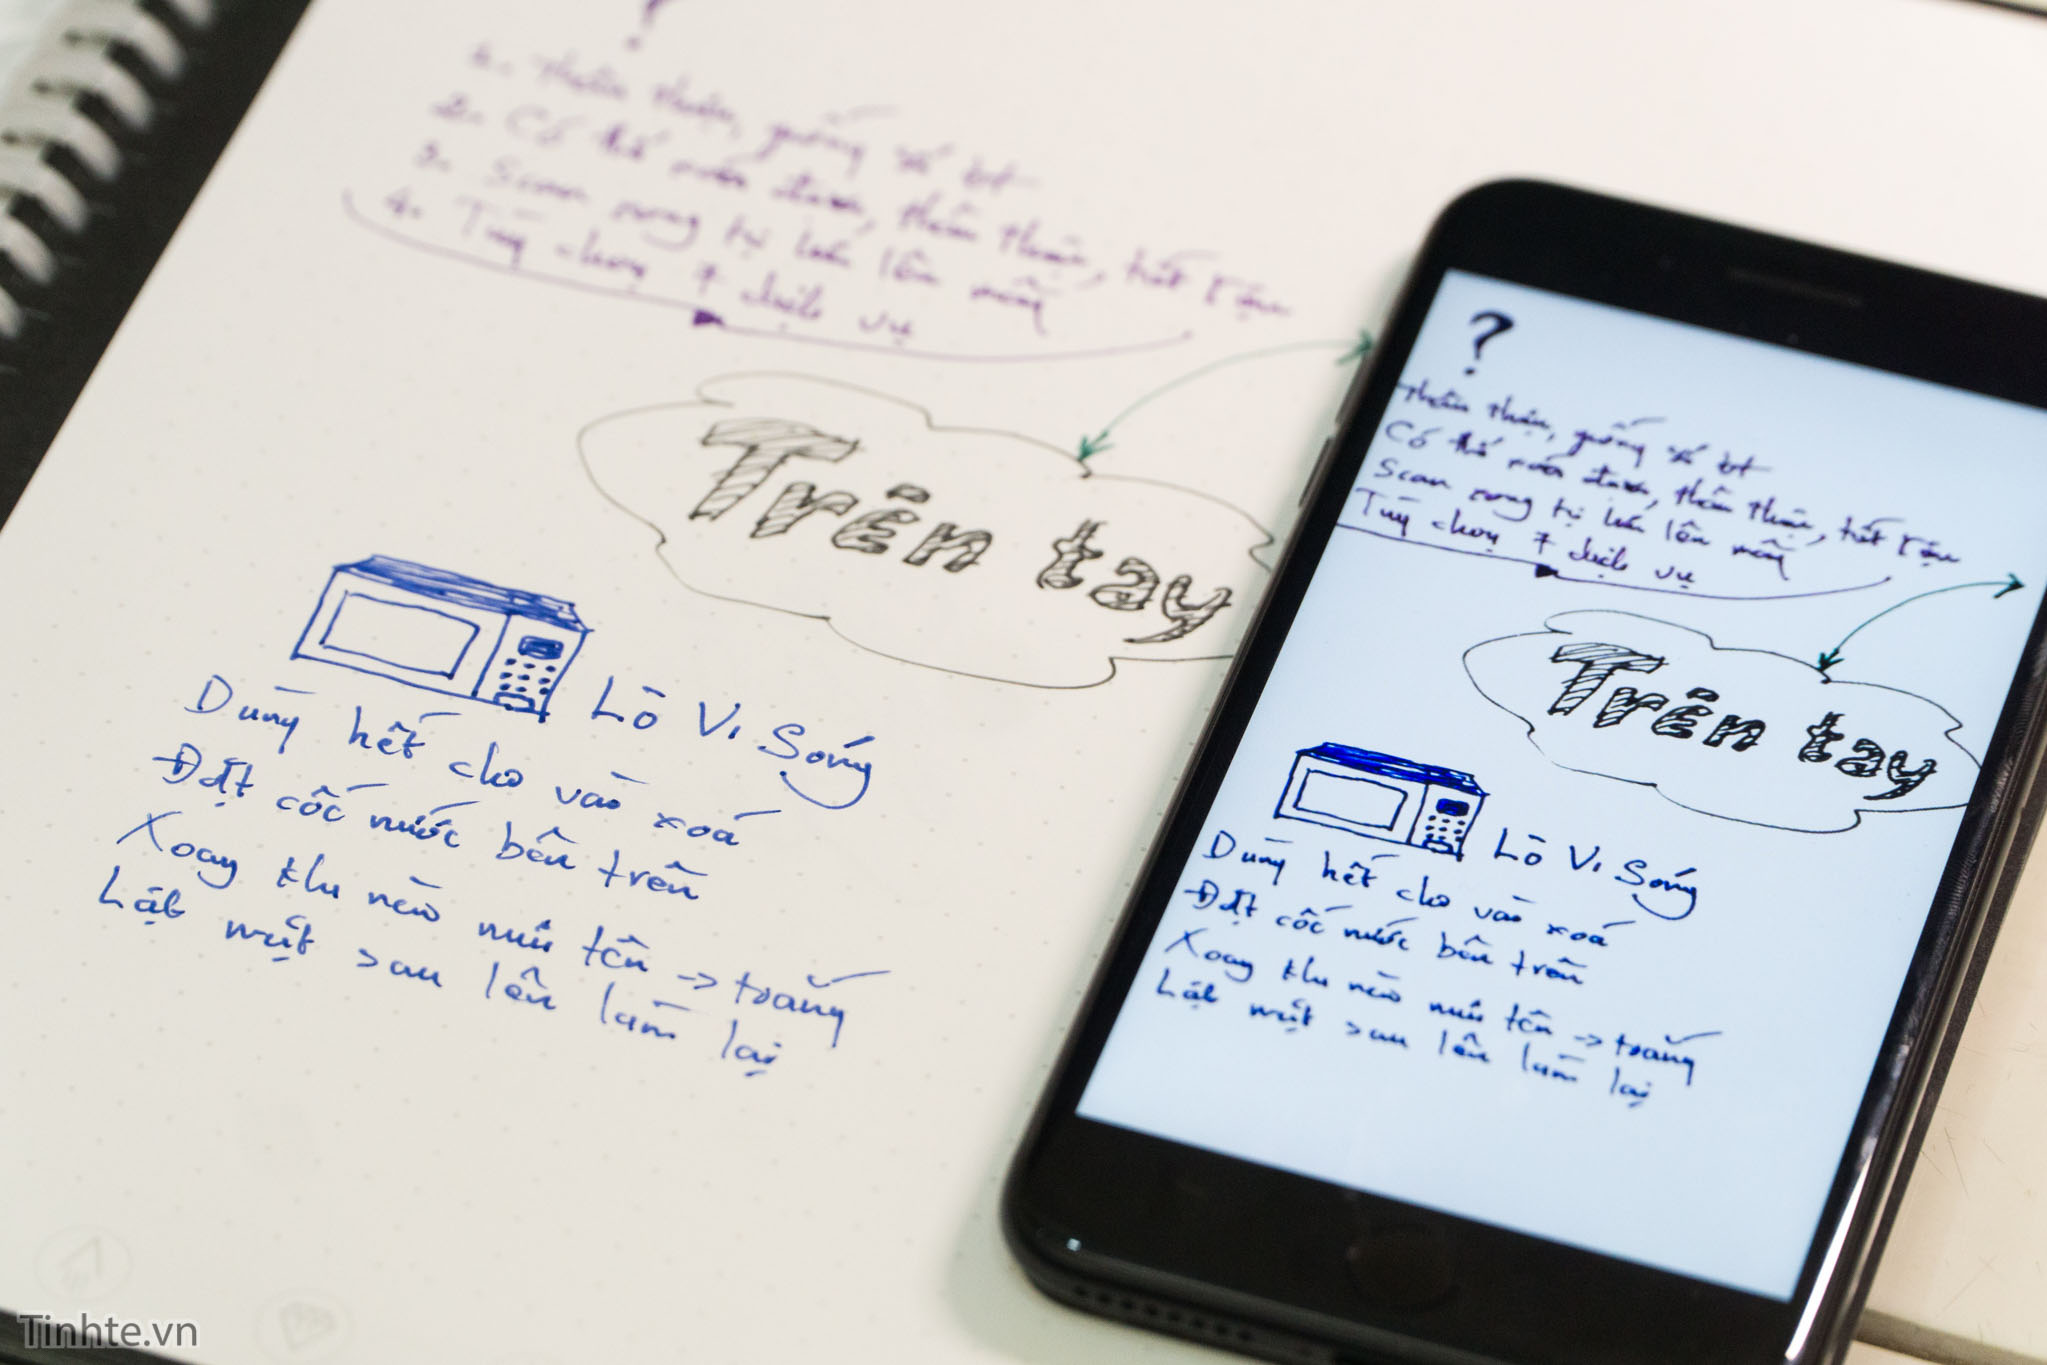 ?
1. Thân thiện, giống sổ bt
2. Có thể xoá được, thân thiện, tiết kiệm
3. Scan xong tự lưu lên mây
4. Tùy chọn 7 dịch vụ
Trên tay
Lò Vi Sóng
Dùng hết cho vào xoá
Đặt cốc nước bên trên
Xoay khi nào mũi tên -> trắng
Lật mặt sau lên làm lại
?
Thân thiện, giống sổ bt
Có thể xoá được, thân thiện, tiết kiệm
Scan xong tự lưu lên mây
Tùy chọn 7 dịch vụ
Trên tay
Lò Vi Sóng
Dùng hết cho vào xoá
Đặt cốc nước bên trên
Xoay khi nào mũi tên -> trắng
Lật mặt sau lên làm lại
Tinhte.vn